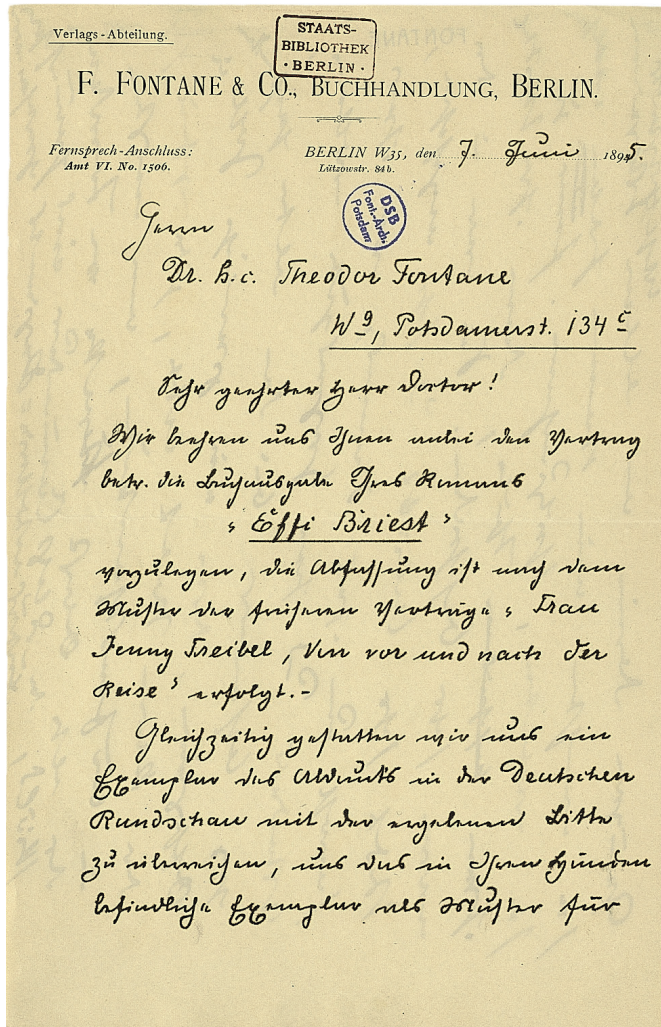 Verlags-Abteilung.
STAATS-
BIBLIOTHEK
· BERLIN ·
F. FONTANE & CO., BUCHHANDLUNG, BERLIN.
Fernsprech-Anschluss:
Amt VI. No. 1506.
BERLIN W35, den 7. Juni 1895.
Lützowstr. 84b.
DSB
Font.-Arch.
Potsdam
Herrn
Dr. h.c. Theodor Fontane
W 9, Potsdamerst. 134 c
Sehr geehrter Herr Doctor!
Wir beehren uns Ihnen anbei den Vertrag
betr. die Buchausgabe Ihres Romans
„Effi Briest“
vorzulegen, die Abfassung ist nach dem
Muster der früheren Verträge „Frau
Jenny Treibel, Von vor und nach der
Reise“ erfolgt.-
Gleichzeitig gestatten wir uns ein
Exemplar des Abdrucks in der Deutschen
Rundschau mit der ergebenen Bitte
zu überreichen, uns das in Ihren Händen
befindliche Exemplar als Muster für